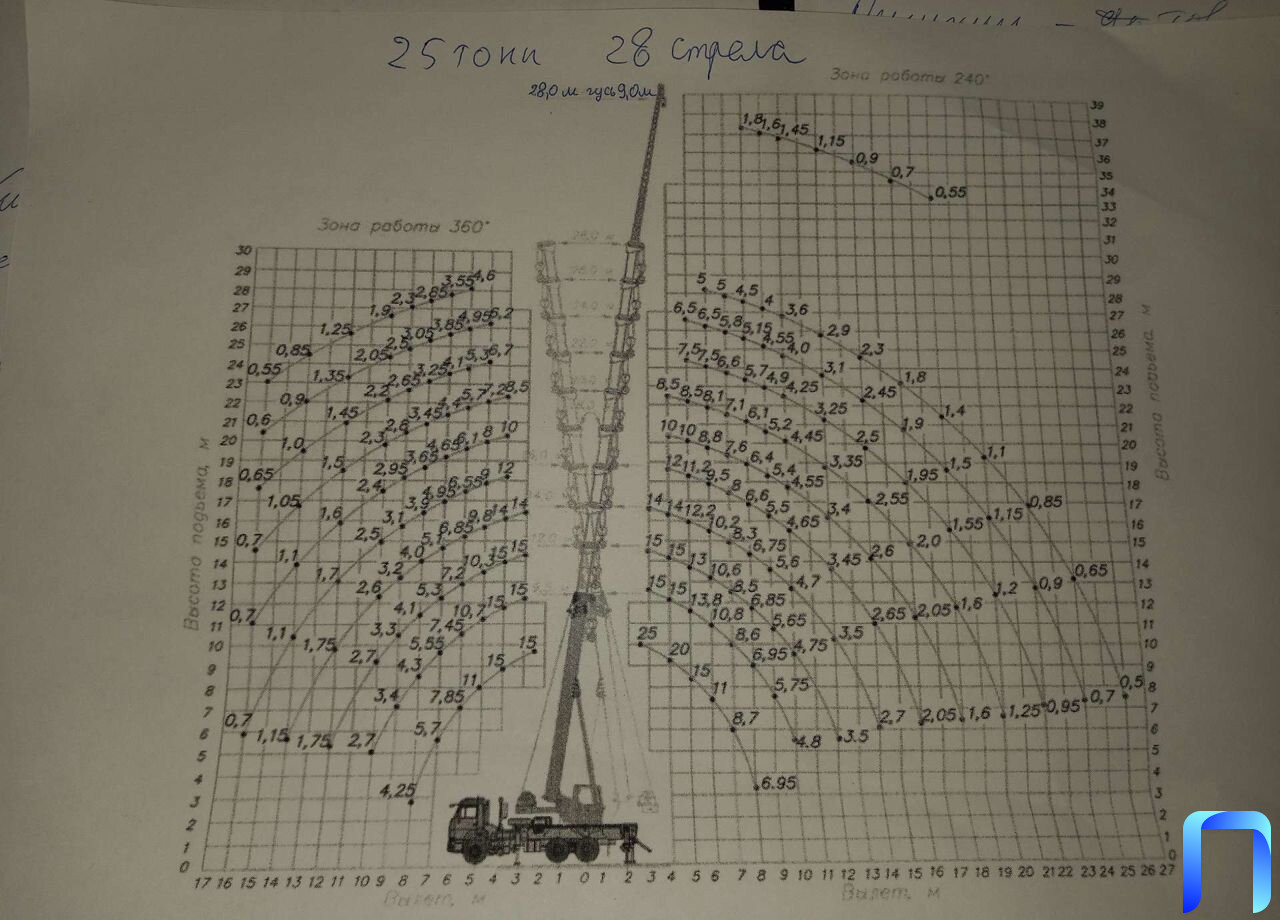 25 тонн 28 стрела
28,0 м гусь 9,0м
Зона работы 240°
Зона работы 360°
1,8 1,6 1,45 1,15 0,9 0,7 0,55
39
38
37
36
35
34
33
32
31
30
29
28
27
26
25
24
23
22
21
20
19
18
17
16
15
14
13
12
11
10
9
8
7
6
5
4
3
2
1
0
Высота подъема, м
30
29
28
26
25
24
23
22
21
20
19
18
17
16
15
14
13
12
11
10
9
8
7
6
5
4
3
2
1
0
Высота подъема, м
0,55 0,85 1,25 1,9 2,3 2,85 3,55 4,6
0,6 0,9 1,35 2,05 2,5 3,05 3,85 4,95 5,2
0,65 1,0 1,45 2,2 2,65 3,25 4,1 5,3 6,7
0,7 1,05 1,5 2,3 2,8 3,45 4,4 5,7 7,2 8,5
0,7 1,1 1,6 2,4 2,95 3,65 4,65 6,1 8 10
1,1 1,7 2,5 3,1 3,9 4,95 6,55 9 12
0,7 1,15 1,75 2,6 3,2 4,0 5,1 6,85 9,8 14 14
1,75 2,7 3,3 4,1 5,3 7,2 10,3 15 15
2,7 3,4 4,3 5,55 7,45 10,7 15 15
4,25 5,7 7,85 11 15 15
5 5 4,5 4 3,6 2,9 2,3 1,8 1,4 1,1 0,85 0,65 0,5
6,5 6,5 5,8 5,15 4,55 4,0 3,1 2,45 1,9 1,5 1,15 0,9 0,7
7,5 7,5 6,6 5,7 4,9 4,25 3,25 2,5 1,95 1,55 1,2 0,95
8,5 8,5 8,1 7,1 6,1 5,2 4,45 3,35 2,55 2,0 1,6 1,25
10 10 8,8 7,6 6,4 5,4 4,55 3,4 2,6 2,05 1,6
12 11,2 9,5 8 6,6 5,5 4,65 3,45 2,65 2,05
14 14 12,2 10,2 8,3 6,75 5,6 4,7 3,5 2,7
15 15 13 10,6 8,5 6,85 5,65 4,75 3.5
15 15 13,8 10,8 8,6 6,95 5,75 4.8
25 20 15 11 8,7 6.95
17 16 15 14 13 12 11 10 9 8 7 6 5 4 3 2 1 0 1 2 3 4 5 6 7 8 9 10 11 12 13 14 15 16 17 18 19 20 21 22 23 24 25 26 27
Вылет, м
Вылет, м